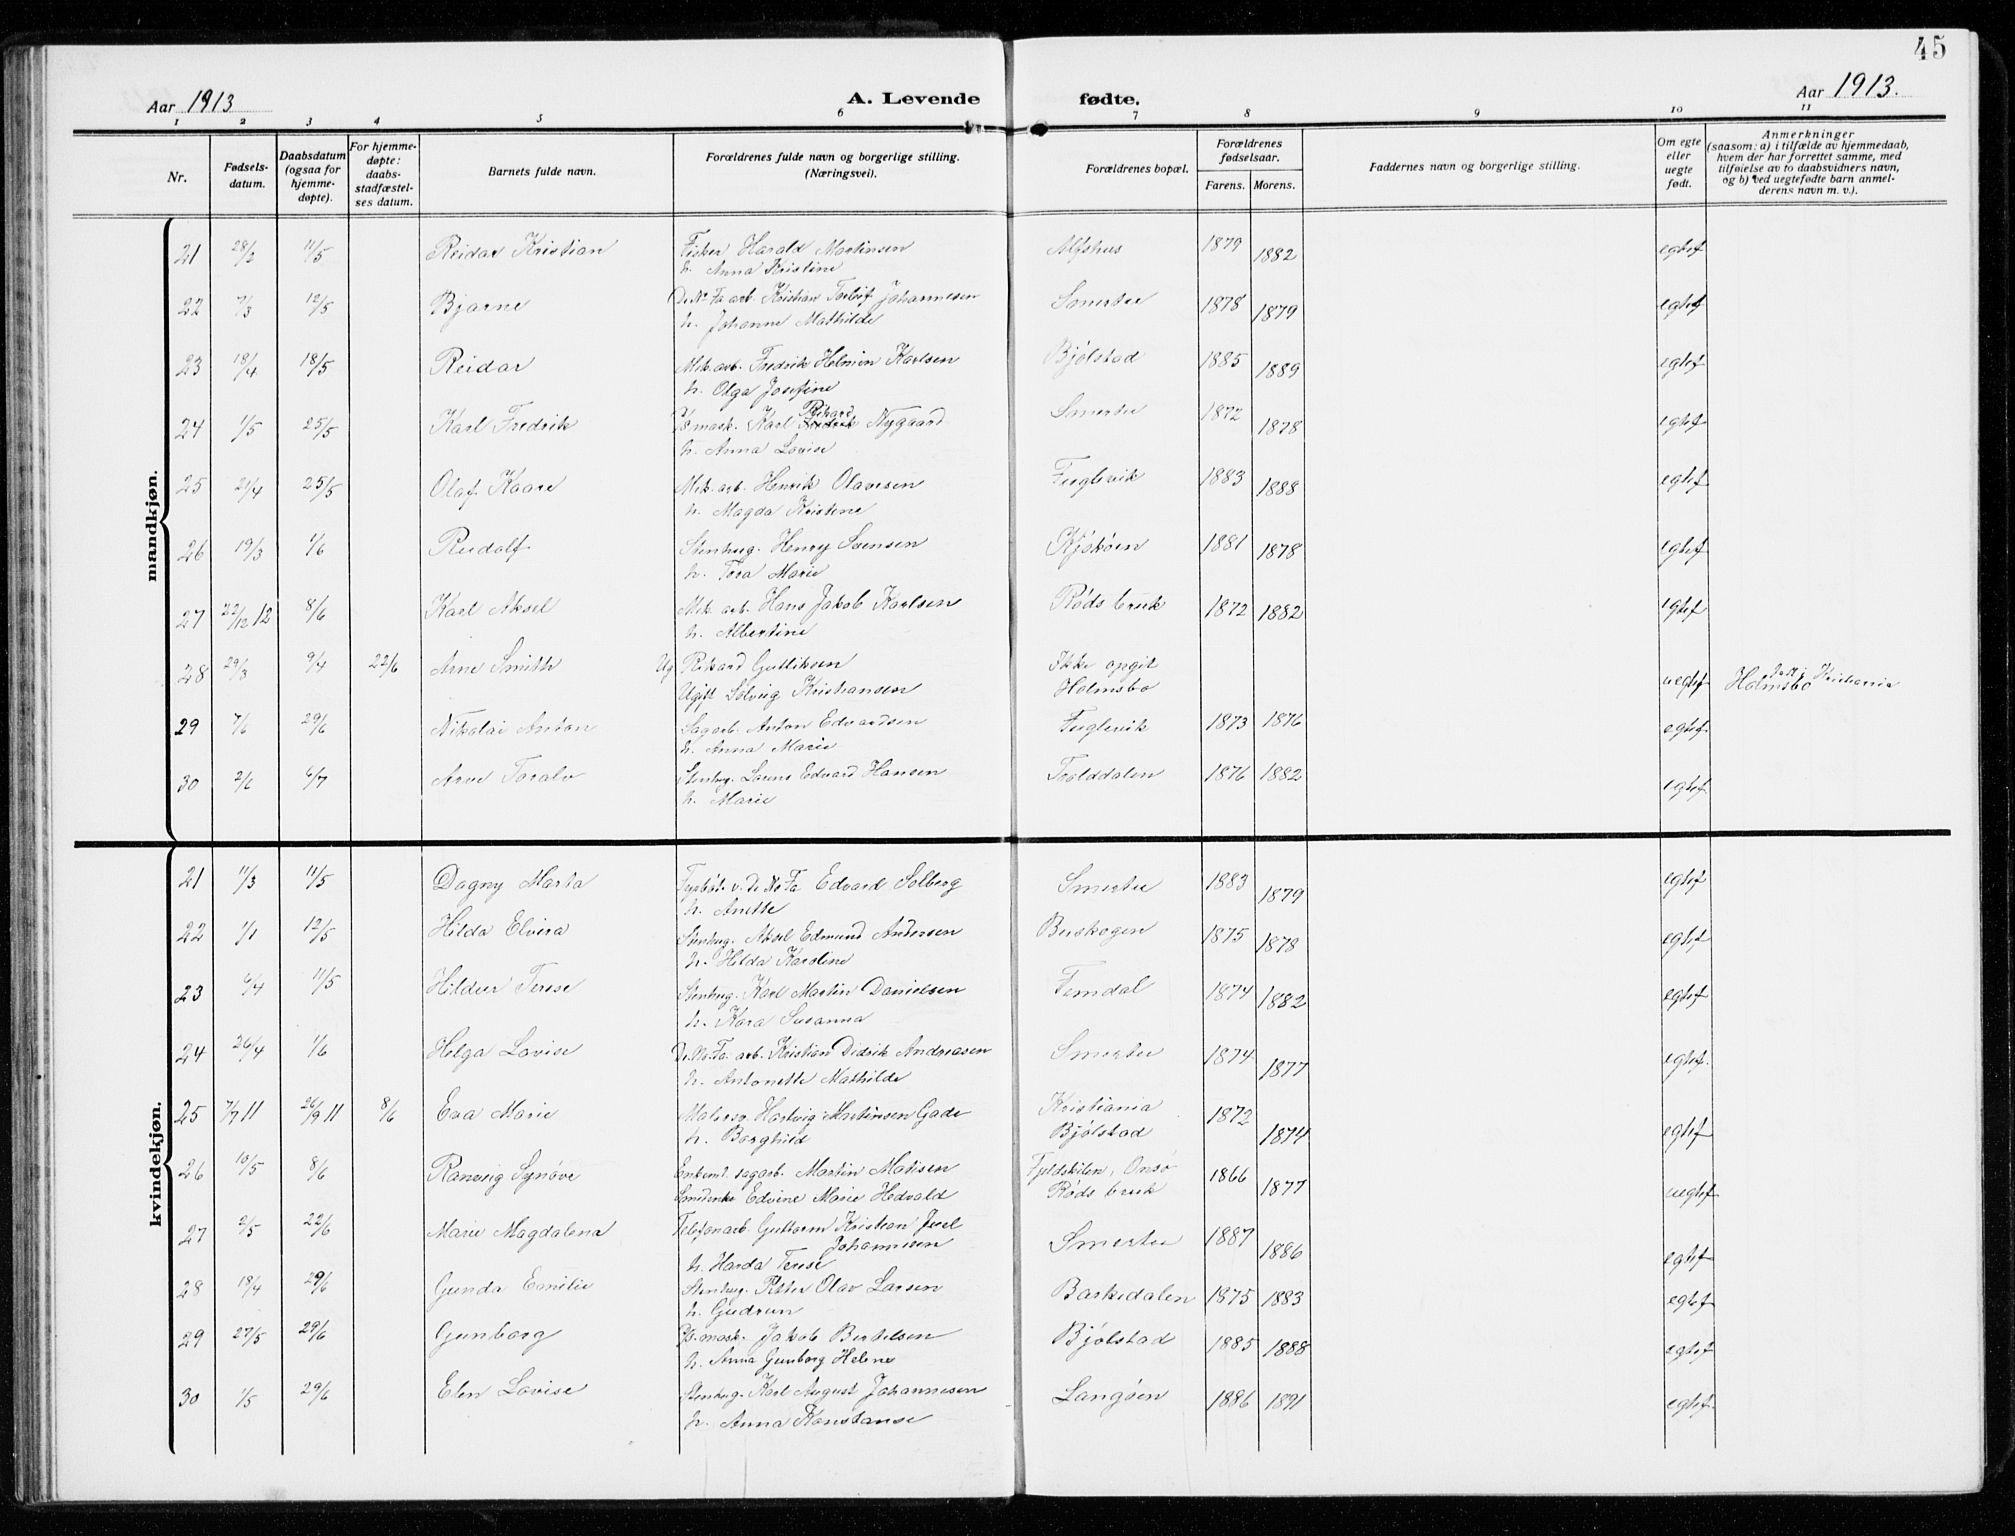 45
Aar 1913
A. Levende fødte.
Aar 1913.
1 2 3 4 5 6 7 8 9 10 11
Nr.
Fødsels-
datum.
Daabsdatum
(ogsaa for
hjemme-
døpte).
For hjemme-
døpte:
daabs-
stadfæstel-
ses datum.
Barnets fulde navn.
Forældrenes fulde navn og borgerlige stilling.
(Næringsvei).
Forældrenes bopæl.
Forældrenes
fødselsaar.
Farens. Morens.
Faddernes navn og borgerlige stilling.
Om egte
eller
uegte
født.
Anmerkninger
(saasom: a) i tilfælde av hjemmedaab,
hvem der har forrettet samme, med
tilføielse av to daabsvidners navn,
og b) ved uegtefødte barn anmel-
derens navn m. v.).
mandkjøn.
21 28/2 11/5 Reidar Kristian Fisker Harald Martinsen Alfshus 1879 1882 egtef
h. Anna Kristine
22 7/3 12/5 Bjarne De No Fa arb. Kristian Torleif Johannesen Smertu 1878 1879 egtef
h. Johanne Mathilde
23 18/4 18/5 Reidar Mek. arb. Fredrik Helmin Karlsen Bjølstad 1885 1889 egtef
h. Olga Josefine
24 1/5 25/5 Karl Fredrik mask. Karl Rikard Nygaard Smertu 1872 1878 egtef
h. Anna Lovise
25 21/4 25/5 Olaf Kaare Mek. arb. Henrik Olavesen Fuglevik 1883 1888 egtef
h. Magda Kristine
26 19/3 1/6 Rudolf Stenhug. Henry Svensen Kjøkøen 1881 1878 egtef
h. Tora Marie
27 22/12 12 8/6 Karl Aksel Mek. arb. Hans Jakob Karlsen Røds bruk 1872 1882 egtef
h. Albertine
28 29/3 9/4 22/6 Arne Smith Ug Rikard Gulliksen Ikke opgit
Ugift Solveig Kristiansen Holmsbo uegtef Holmsbo Kristiania
29 7/6 29/6 Nikolai Anton Sagarb. Anton Edvardsen Fuglevik 1873 1876 egtef
h. Anna Marie
30 2/6 6/7 Arve Toralv Stenhug. Lorens Edvard Hansen Trolddalen 1876 1882 egtef
h. Marie
kvindekjøn.
21 11/3 11/5 Dagny Marta Fyrbøt. v. De No Fa Edvard Solberg Smertu 1883 1879 egtef
h. Anette
22 1/1 12/5 Hilda Elvira Stenhug. Aksel Edmund Andersen Buskogen 1875 1878 egtef
h. Hilda Karoline
23 6/4 11/5 Hildur Terese Stenhug. Karl Martin Danielsen Femdal 1874 1882 egtef
h. Kara Susanna
24 26/4 1/6 Helga Lovise De No Fa. arb. Kristian Didrik Andreasen Smertu 1874 1877 egtef.
h. Antonette Mathilde
25 7/7 11 26/9 11 8/6 Eva Marie Malersv. Hartvig Martinsen Gade Kristiania 1872 1874 egtef
h. Borghild Bjølstad
26 10/5 8/6 Ranveig Synøve Enkemd. sagarb. Martin Matisen Fjeldskilen, Onsø 1866 1877 uegtef
Edvine Marie Hedvald Røds bruk
27 2/5 22/6 Marie Magdalena Telefonarb. Guttorm Kristian Juel Smertu 1887 1886 egtef
Johannesen
h. Harda Terese
28 18/4 29/6 Gunda Emilie Stenhug. Petter Olav Larsen Barkedalen 1875 1883 egtef
h. Gudrun
29 27/5 29/6 Gunborg mask. Jakob Bertelsen Bjølstad 1885 1888 egtef
h. Anna Gunborg Helene
30 1/5 29/6 Elen Lovise Stenhug. Karl August Johannesen Langøen 1886 1891 egtef.
h. Anna Konstanse